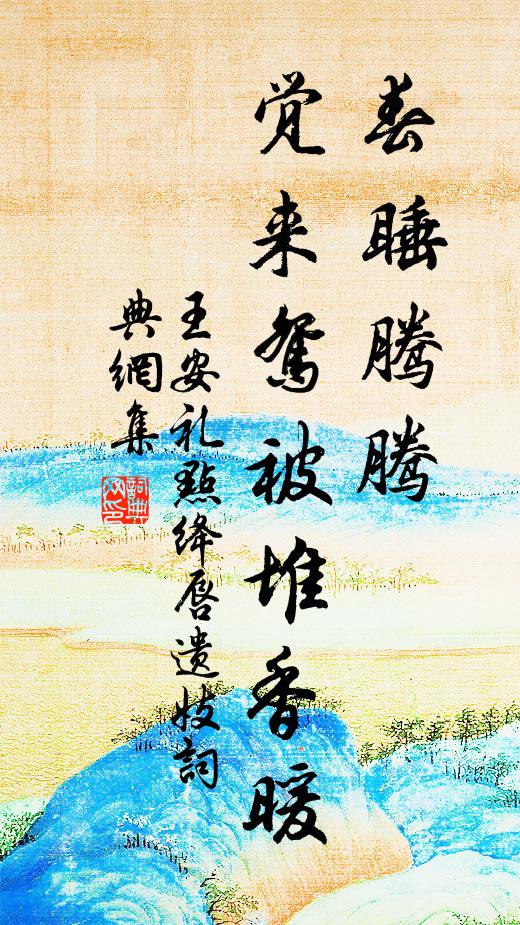 春睡腾腾
觉来鸳被堆香暖
王安礼點绛唇遗妓詞
典網集